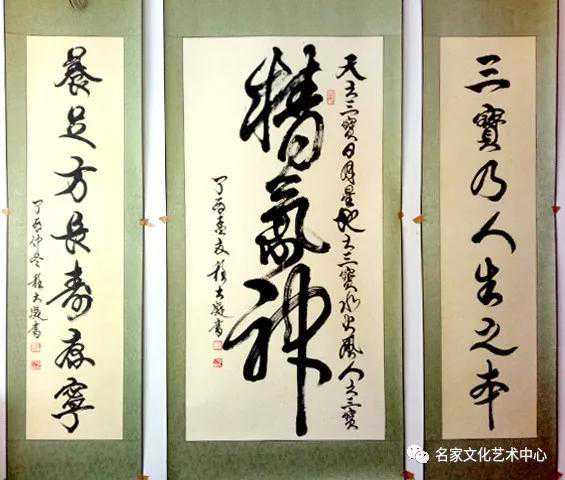 三寶乃人生之本
天之三寶日月星地之三寶水火風人之三寶
精氣神
丁酉 書
養足方長壽康寧
丁酉仲冬 書
名家文化艺术中心